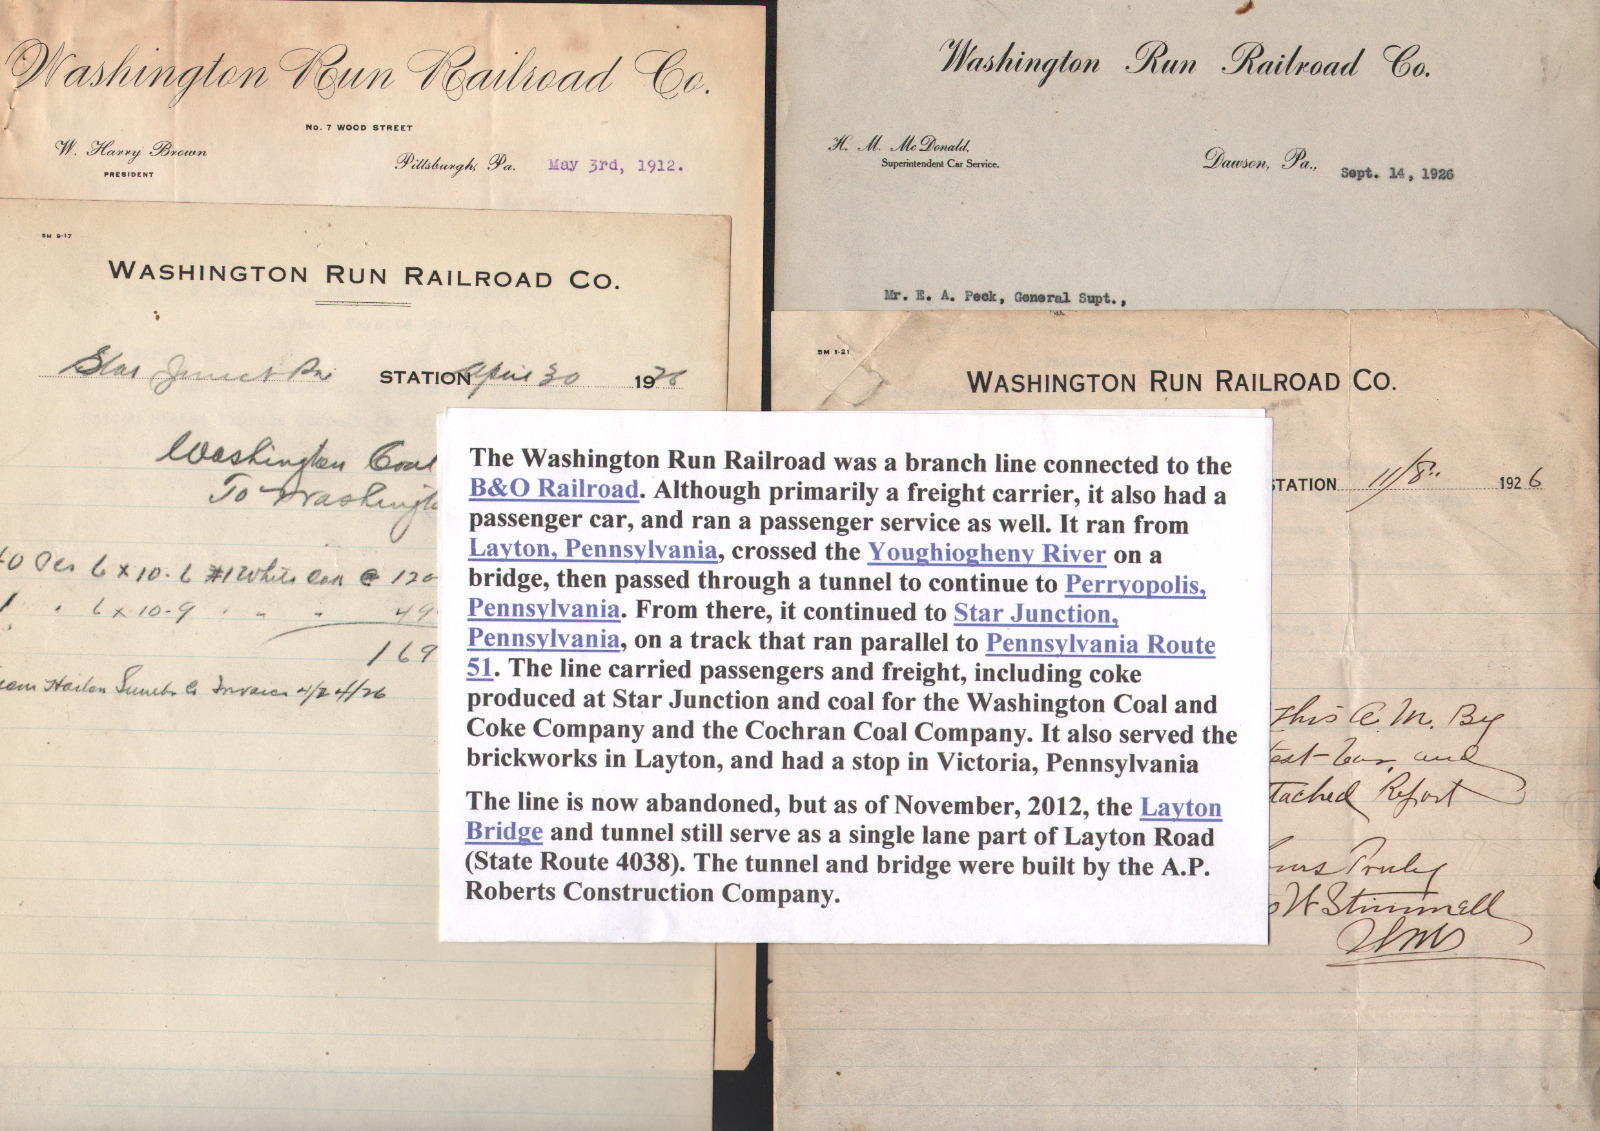 Washington Run Railroad Co.
No. 7 WOOD STREET
W. Harry Brown
PRESIDENT
Pittsburgh, Pa. May 3rd, 1912.
5M 9-17
WASHINGTON RUN RAILROAD CO.
Star Junct Pa STATION April 30 1926
Washington Coal
To Washingt
6 x 10-6 #1 White Oak @ 120
1 " 6 x 10-9 " " " 49
169
Invoice 4/24/26
Washington Run Railroad Co.
H. M. McDonald,
Superintendent Car Service.
Dawson, Pa., Sept. 14, 1926
Mr. E. A. Peck, General Supt.,
5M 1-21
WASHINGTON RUN RAILROAD CO.
STATION 11/8" 1926
this A.M. By
and
tached Report
ours Truly
W Stimmell
The Washington Run Railroad was a branch line connected to the
B&O Railroad. Although primarily a freight carrier, it also had a
passenger car, and ran a passenger service as well. It ran from
Layton, Pennsylvania, crossed the Youghiogheny River on a
bridge, then passed through a tunnel to continue to Perryopolis,
Pennsylvania. From there, it continued to Star Junction,
Pennsylvania, on a track that ran parallel to Pennsylvania Route
51. The line carried passengers and freight, including coke
produced at Star Junction and coal for the Washington Coal and
Coke Company and the Cochran Coal Company. It also served the
brickworks in Layton, and had a stop in Victoria, Pennsylvania
The line is now abandoned, but as of November, 2012, the Layton
Bridge and tunnel still serve as a single lane part of Layton Road
(State Route 4038). The tunnel and bridge were built by the A.P.
Roberts Construction Company.